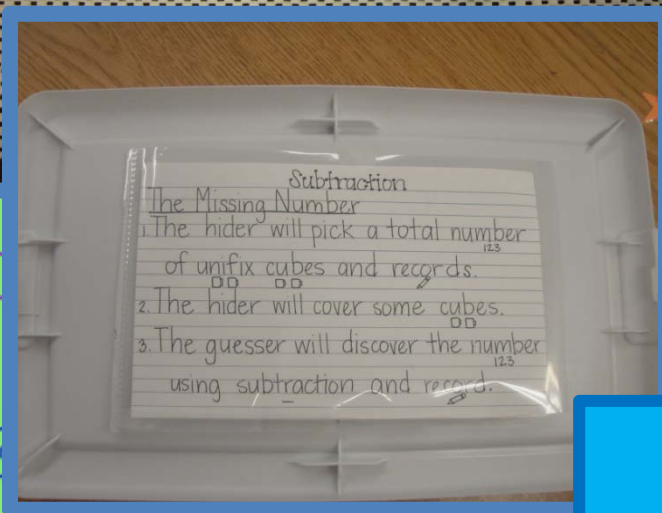 Subtraction
The Missing Number
1. The hider will pick a total number
123
of unifix cubes and records.
2. The hider will cover some cubes.
3. The guesser will discover the number
123
using subtraction and record.